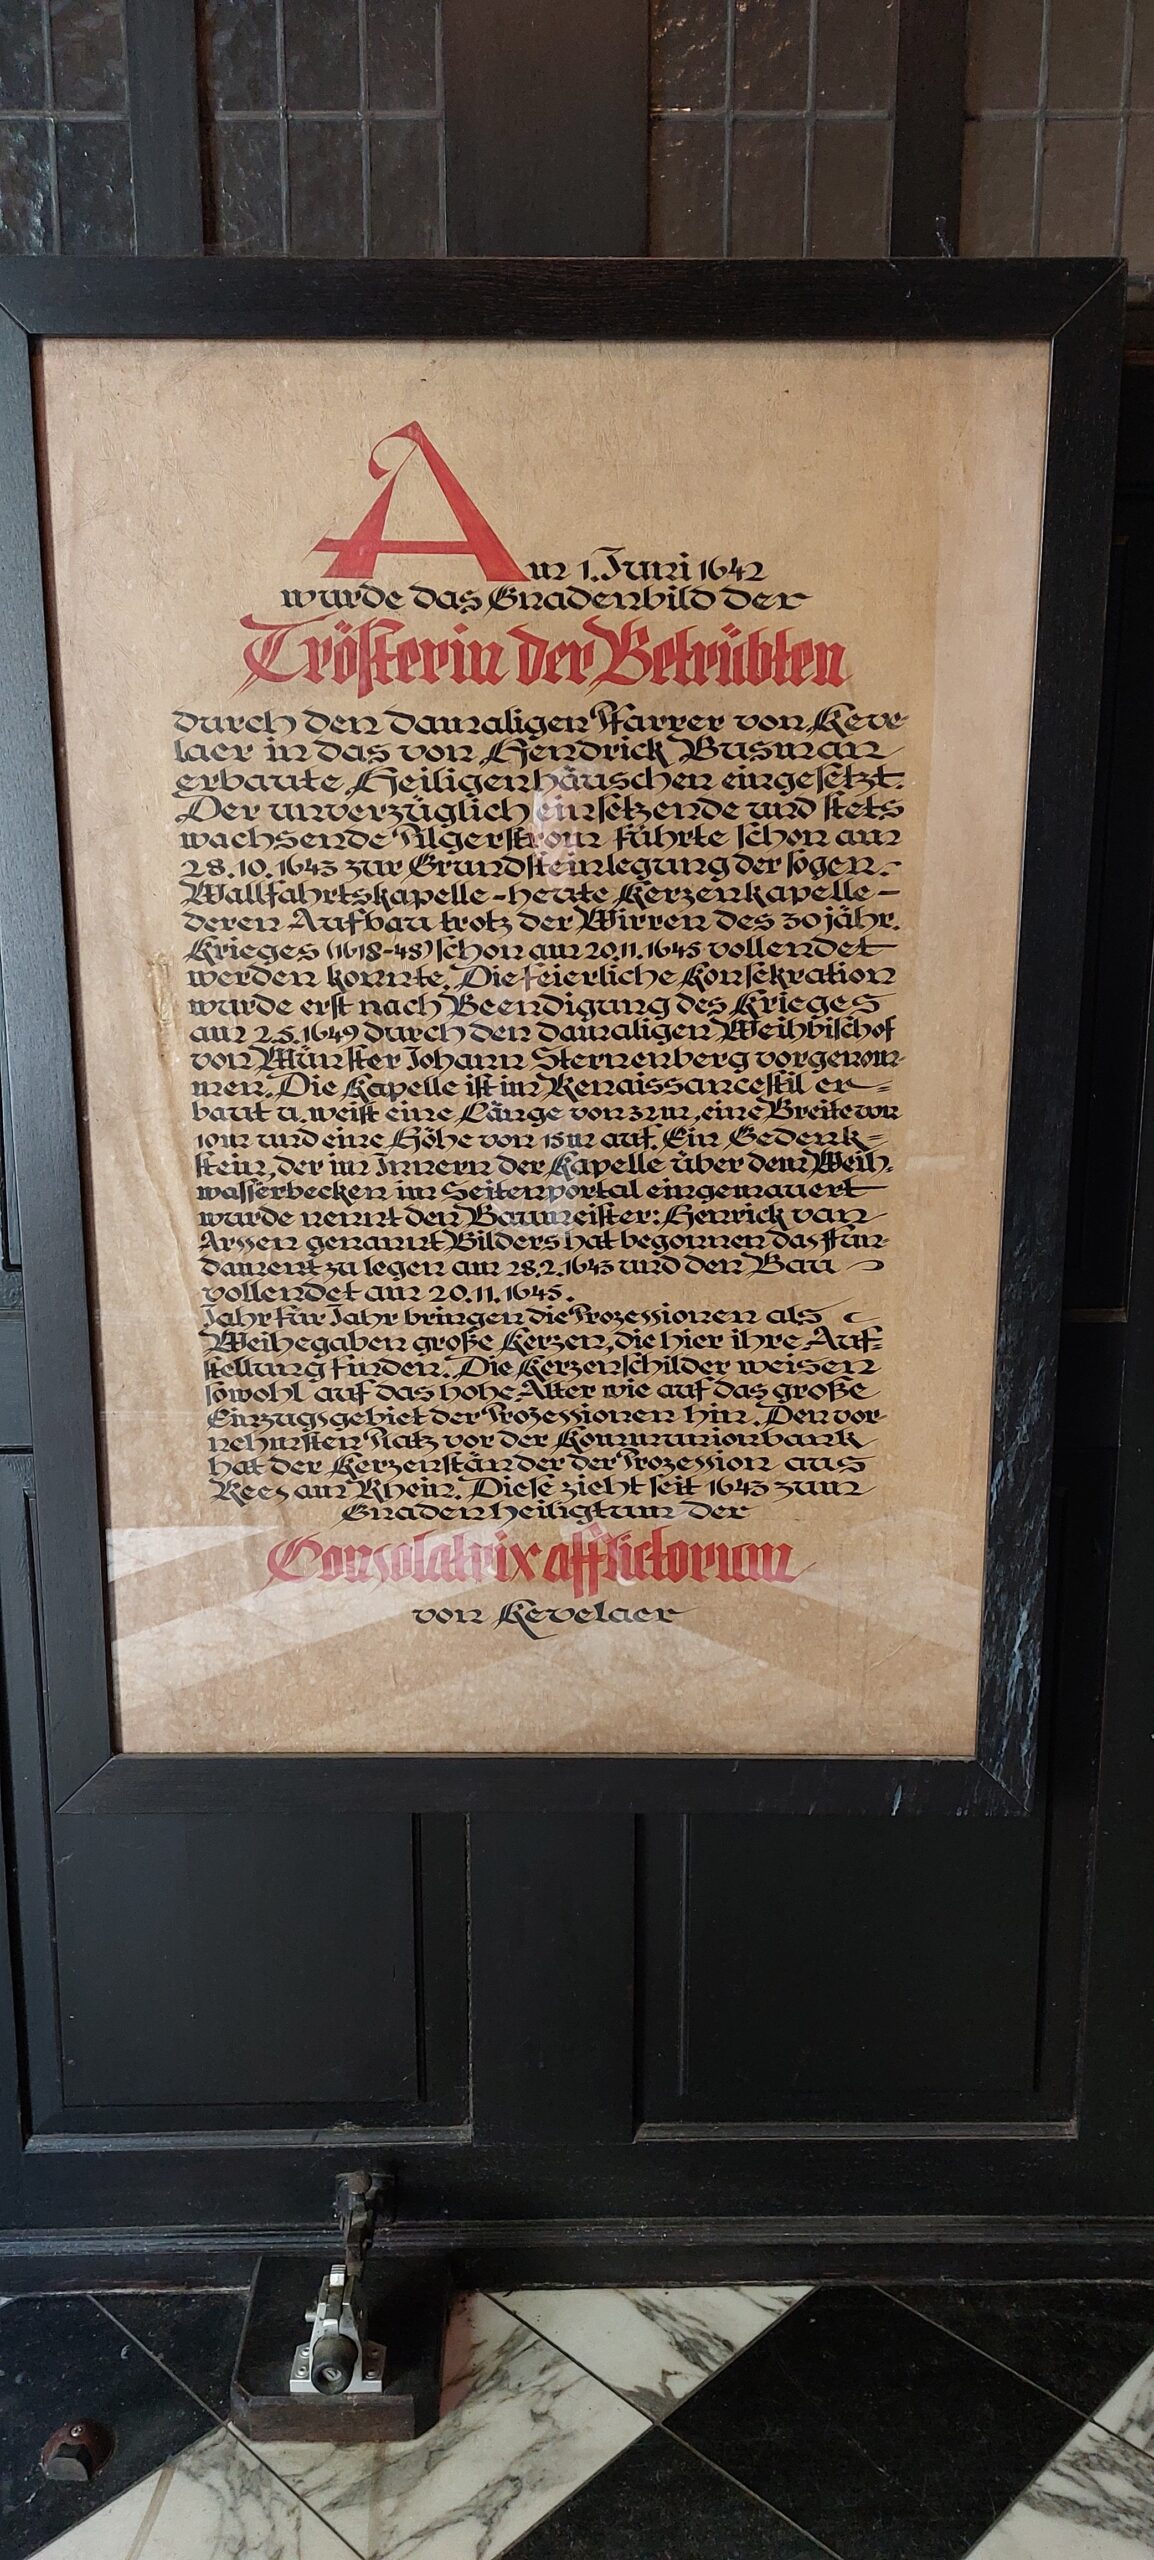 Am 1. Juni 1642
wurde das Gnadenbild der
Trösterin der Betrübten
durch den damaligen Pfarrer von Keve-
laer in das von Hendrick Busman
erbaute Heiligenhäuschen eingesetzt.
Der unverzüglich einsetzende und stets
wachsende Pilgerstrom führte schon am
28.10.1643 zur Grundsteinlegung der sogen.
Wallfahrtskapelle - heute Kerzenkapelle -
deren Aufbau trotz der Wirren des 30jähr.
Krieges (1618-48) schon am 20.11.1645 vollendet
werden konnte. Die feierliche Konsekration
wurde erst nach Beendigung des Krieges
am 2.5.1649 durch den damaligen Weihbischof
von Münster Johann Sternenberg vorgenom-
men. Die Kapelle ist im Renaissancestil er=
baut u. weist eine Länge von 31m, eine Breite von
10m und eine Höhe von 15m auf. Ein Gedenk=
stein, der im Innern der Kapelle über dem Weih-
wasserbecken im Seitenportal eingemauert
wurde nennt den Baumeister: Henrick van
Arssen genannt Bilders hat begonnen das Fun-
dament zu legen am 28.2.1643 und den Bau
vollendet am 20.11.1645.
Jahr für Jahr bringen die Prozessionen als
Weihegaben große Kerzen, die hier ihre Auf=
stellung finden. Die Kerzenschilder weisen
sowohl auf das hohe Alter wie auf das große
Einzugsgebiet der Prozessionen hin. Den vor-
nehmsten Platz vor der Kommunionbank
hat der Kerzenständer der Prozession aus
Rees am Rhein. Diese zieht seit 1643 zum
Gnadenheiligtum der
Consolatrix afflictorum
von Kevelaer